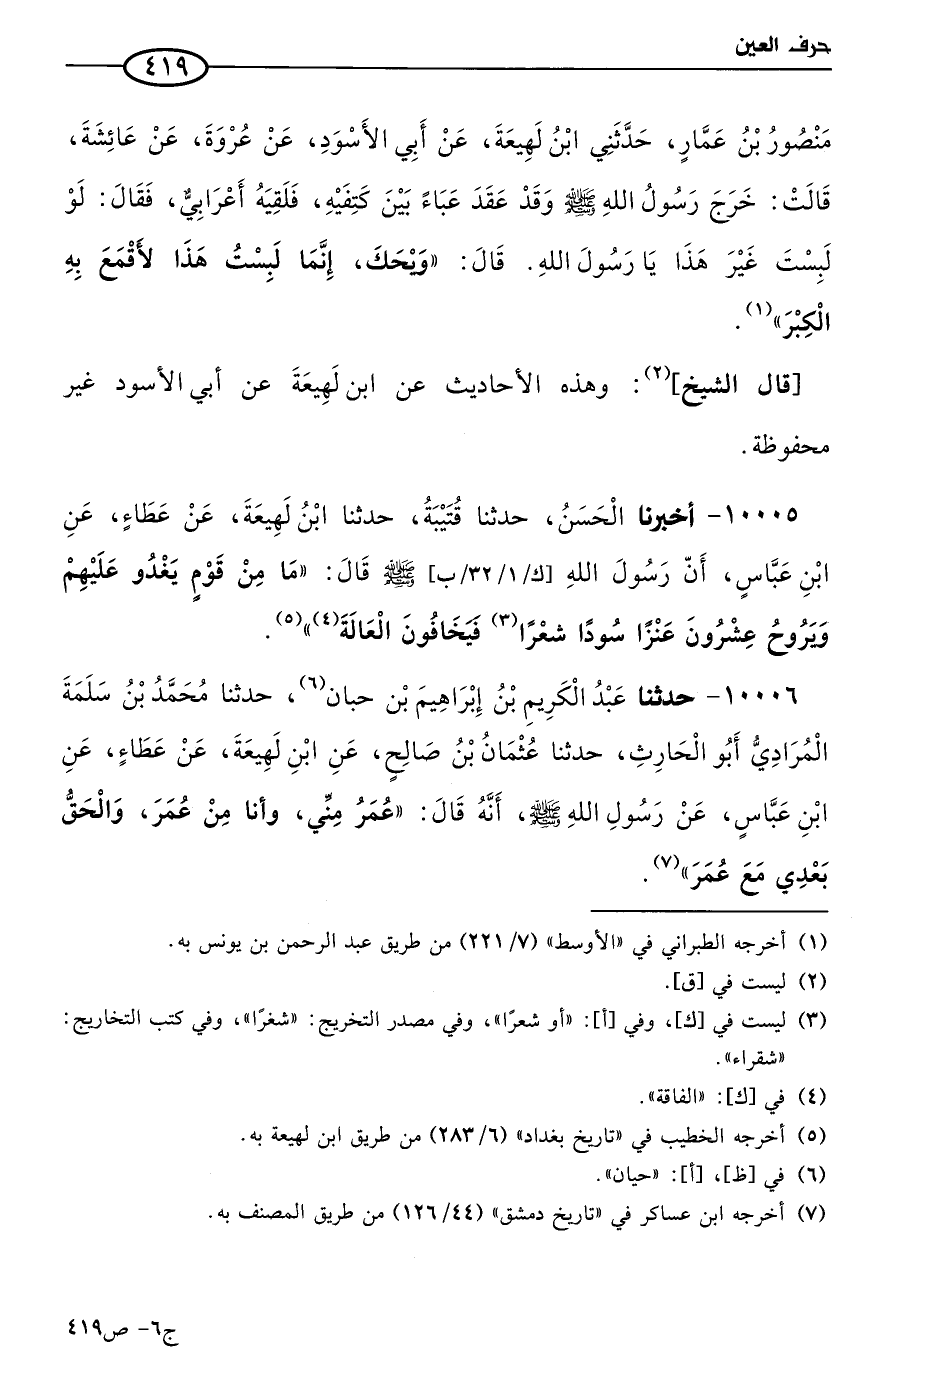 حرف العين
٤١٩
مَنْصُورُ بْنُ عَمَّارٍ، حَدَّثَنِي ابْنُ لَهِيعَةَ، عَنْ أَبِي الأَسْوَدِ، عَنْ عُرْوَةَ، عَنْ عَائِشَةَ،
قَالَتْ: خَرَجَ رَسُولُ اللهِ ﷺ وَقَدْ عَقَدَ عَبَاءً بَيْنَ كَتِفَيْهِ، فَلَقِيَهُ أَعْرَابِيٌّ، فَقَالَ: لَوْ
لَبِسْتَ غَيْرَ هَذَا يَا رَسُولَ اللهِ. قَالَ: «وَيْحَكَ، إِنَّمَا لَبِسْتُ هَذَا لأَقْمَعَ بِهِ
الْكِبْرَ»(١).
[قال الشيخ](٢): وهذه الأحاديث عن ابن لَهِيعَةَ عن أبي الأسود غير
محفوظة.
١٠٠٠٥- أخبرنا الْحَسَنُ، حدثنا قُتَيْبَةُ، حدثنا ابْنُ لَهِيعَةَ، عَنْ عَطَاءٍ، عَنِ
ابْنِ عَبَّاسٍ، أَنّ رَسُولَ اللهِ [ك/٣٢/١/ب] ﷺ قَالَ: «مَا مِنْ قَوْمٍ يَغْدُو عَلَيْهِمْ
وَيَرُوحُ عِشْرُونَ عَنْزًا سُودًا شعْرًا(٣) فَيَخَافُونَ الْعَالَةَ(٤)»(٥).
١٠٠٠٦- حدثنا عَبْدُ الْكَرِيمِ بْنُ إِبْرَاهِيمَ بْن حبان(٦)، حدثنا مُحَمَّدُ بْنُ سَلَمَةَ
الْمُرَادِيُّ أَبُو الْحَارِثِ، حدثنا عُثْمَانُ بْنُ صَالِحٍ، عَنِ ابْنِ لَهِيعَةَ، عَنْ عَطَاءٍ، عَنِ
ابْنِ عَبَّاسٍ، عَنْ رَسُولِ اللهِ ﷺ، أَنَّهُ قَالَ: «عُمَرُ مِنِّي، وأنا مِنْ عُمَرَ، وَالْحَقُّ
بَعْدِي مَعَ عُمَرَ»(٧).
(١) أخرجه الطبراني في «الأوسط» (٧/ ٢٢١) من طريق عبد الرحمن بن يونس به.
(٢) ليست في [ق].
(٣) ليست في [ك]، وفي [أ]: «أو شعرًا»، وفي مصدر التخريج: «شغرًا»، وفي كتب التخاريج:
«شقراء».
(٤) في [ك]: «الفاقة».
(٥) أخرجه الخطيب في «تاريخ بغداد» (٦/ ٢٨٣) من طريق ابن لهيعة به.
(٦) في [ظ]، [أ]: «حيان».
(٧) أخرجه ابن عساكر في «تاريخ دمشق» (٤٤/ ١٢٦) من طريق المصنف به.
ج٦- ص٤١٩